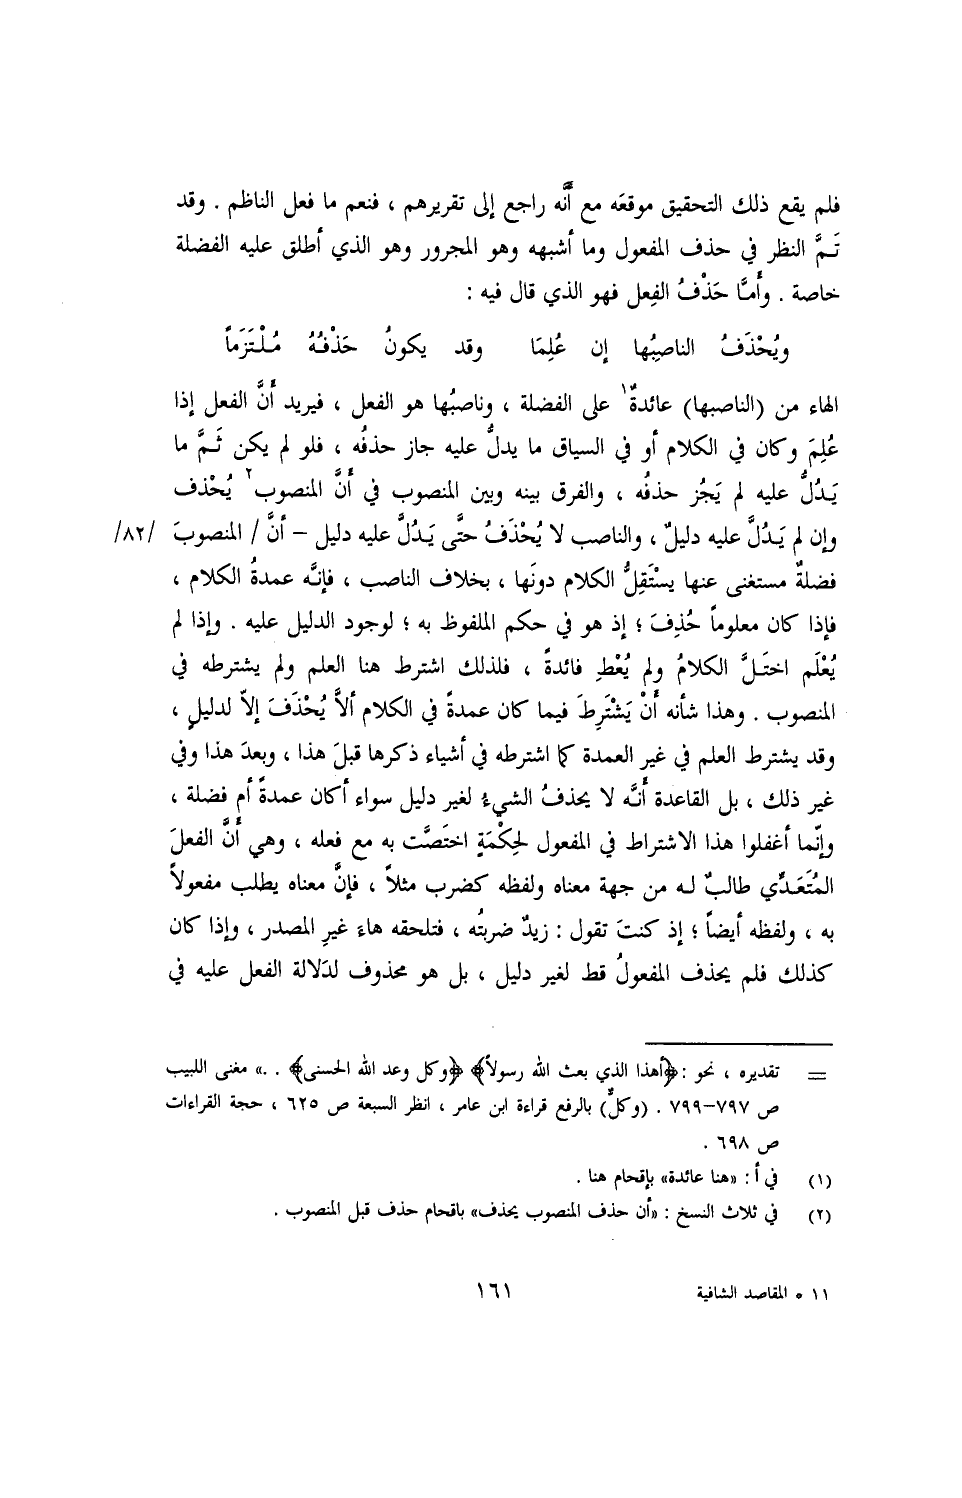 فلم يقع ذلك التحقيق موقعَه مع أنَّه راجع إلى تقريرهم ، فنعم ما فعل الناظم . وقد
تَمَّ النظر في حذف المفعول وما أشبهه وهو المجرور وهو الذي أطلق عليه الفضلة
خاصة . وأَمَّا حَذْفُ الفِعل فهو الذي قال فيه :
ويُحْذَفُ الناصِبُها إن عُلِمَا وقد يكونُ حَذْفُهُ مُلْتَزَماً
الهاء من (الناصبها) عائدةٌ١ على الفضلة ، وناصبُها هو الفعل ، فيريد أنَّ الفعل إذا
عُلِمَ وكان في الكلام أو في السياق ما يدلُّ عليه جاز حذفُه ، فلو لم يكن ثَمَّ ما
يَدُلُّ عليه لم يَجُز حذفُه ، والفرق بينه وبين المنصوب في أنَّ المنصوب٢ يُحْذف
وإن لم يَدُلَّ عليه دليلٌ ، والناصب لا يُحْذَفُ حتَّى يَدُلَّ عليه دليل – أنَّ / المنصوبَ /٨٢/
فضلةٌ مستغنى عنها يسْتَقِلُّ الكلام دونَها ، بخلاف الناصب ، فإنَّه عمدةُ الكلام ،
فإذا كان معلوماً حُذِفَ ؛ إذ هو في حكم الملفوظ به ؛ لوجود الدليل عليه . وإذا لم
يُعْلَم اختَلَّ الكلامُ ولم يُعْطِ فائدةً ، فلذلك اشترط هنا العلم ولم يشترطه في
المنصوب . وهذا شأنه أَنْ يَشْتَرِطَ فيما كان عمدةً في الكلام ألاَّ يُحْذَفَ إلاّ لدليلٍ ،
وقد يشترط العلم في غير العمدة كما اشترطه في أشياء ذكرها قبلَ هذا ، وبعدَ هذا وفي
غير ذلك ، بل القاعدة أنَّه لا يحذفُ الشيءُ لغير دليل سواء أكان عمدةً أم فضلة ،
وإنّما أغفلوا هذا الاشتراط في المفعول لحِكْمَةٍ اختَصَّت به مع فعله ، وهي أنَّ الفعلَ
المُتَعَدِّي طالبٌ له من جهة معناه ولفظه كضرب مثلاً ، فإنَّ معناه يطلب مفعولاً
به ، ولفظه أيضاً ؛ إذ كنتَ تقول : زيدٌ ضربتُه ، فتلحقه هاءَ غيرِ المصدر ، وإذا كان
كذلك فلم يحذف المفعولُ قط لغير دليل ، بل هو محذوف لدَلالة الفعل عليه في
= تقديره ، نحو : ﴿أهذا الذي بعث الله رسولاً﴾ ﴿وكل وعد الله الحسنى﴾ . .» مغنى اللبيب
ص ٧٩٧–٧٩٩ . (وكلٌّ) بالرفع قراءة ابن عامر ، انظر السبعة ص ٦٢٥ ، حجة القراءات
ص ٦٩٨ .
(١) في أ : «هنا عائدة» بإقحام هنا .
(٢) في ثلاث النسخ : «أن حذف المنصوب يحذف» باقحام حذف قبل المنصوب .
١١ ٥ المقاصد الشافية ١٦١